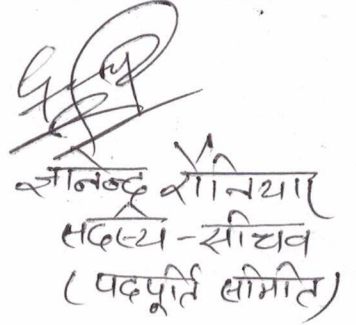 ज्ञानेन्द्र रौनियार
सदस्य - सचिव
( पदपूर्ति समिति )